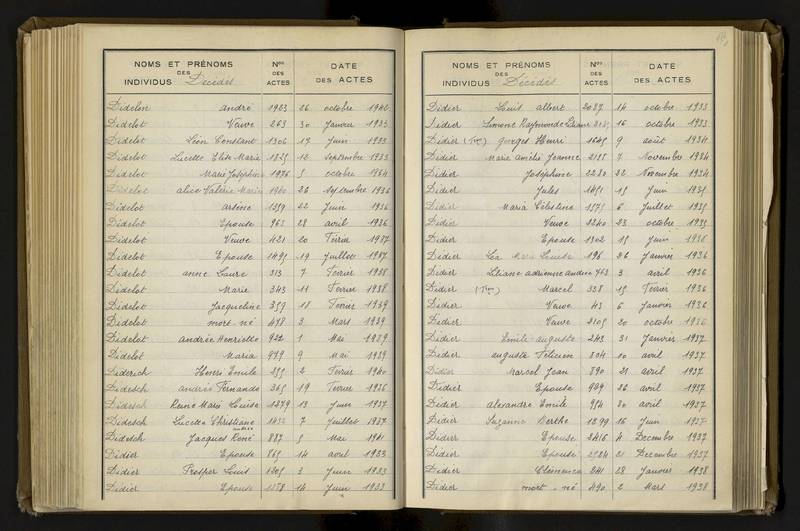 NOMS ET PRÉNOMS
DES
INDIVIDUS Décédés
Nos
DES
ACTES
DATE
DES ACTES
Didelon André 1923 26 octobre 1940
Didelot Veuve 263 30 Janvier 1933
Didelot Léon Constant 1306 17 Juin 1933
Didelot Lucette Elise Marie 1829 12 Septembre 1933
Didelot Marie Joséphine 1976 5 octobre 1934
Didelot Alice Valérie Marie 26 Septembre 1936
Didelot Arsène 1259 22 Juin 1936
Didelot Epouse 963 28 avril 1936
Didelot Veuve 421 20 Février 1937
Didelot Epouse 1495 19 Juillet 1937
Didelot Anne Laure 313 7 Février 1938
Didelot Marie 343 11 Février 1938
Didelot Jacqueline 359 18 Février 1939
Didelot mort-né 478 3 Mars 1939
Didelot Andrée Henriette 922 1 Mai 1939
Didelot Maria 979 9 Mai 1939
Diderich Henri Emile 255 2 Février 1940
Didesch Andrée Fernande 365 19 Février 1936
Didesch Reine Marie Louise 1279 13 Juin 1937
Didesch Lucette Christiane 7 Juillet 1937
Didesch Jacques René 887 5 Mai 1941
Didier Epouse 865 14 avril 1933
Didier Prosper Louis 1205 3 Juin 1933
Didier Epouse 14 Juin 1933
NOMS ET PRÉNOMS
DES
INDIVIDUS Décédés
Nos
DES
ACTES
DATE
DES ACTES
Didier Louis Albert 2087 14 octobre 1933
Didier Simone Raymonde Liliane 16 octobre 1933
Didier georges Henri 1645 9 août 1934
Didier Marie Amélie Jeanne 2188 7 Novembre 1934
Didier Joséphine 2280 22 Novembre 1934
Didier Jules 1451 15 Juin 1935
Didier Maria Célestine 1575 6 Juillet 1935
Didier Veuve 2240 23 octobre 1935
Didier Epouse 1302 15 Juin 1936
Didier Léa Marie Louise 196 26 Janvier 1936
Didier Liliane Adrienne Andrée 763 3 avril 1936
Didier Marcel 338 15 Février 1936
Didier Veuve 43 6 Janvier 1936
Didier Veuve 2105 20 octobre 1936
Didier Emile Auguste 243 31 Janvier 1937
Didier Auguste Félicien 804 10 avril 1937
Didier Marcel Jean 890 21 avril 1937
Didier Epouse 929 26 avril 1937
Didier Alexandre Emile 954 30 avril 1937
Didier Suzanne Berthe 1299 16 Juin 1937
Didier Epouse 2416 4 Décembre 1937
Didier Epouse 21 Décembre 1937
Didier Clémence 241 28 Janvier 1938
Didier mort-né 490 2 Mars 1938